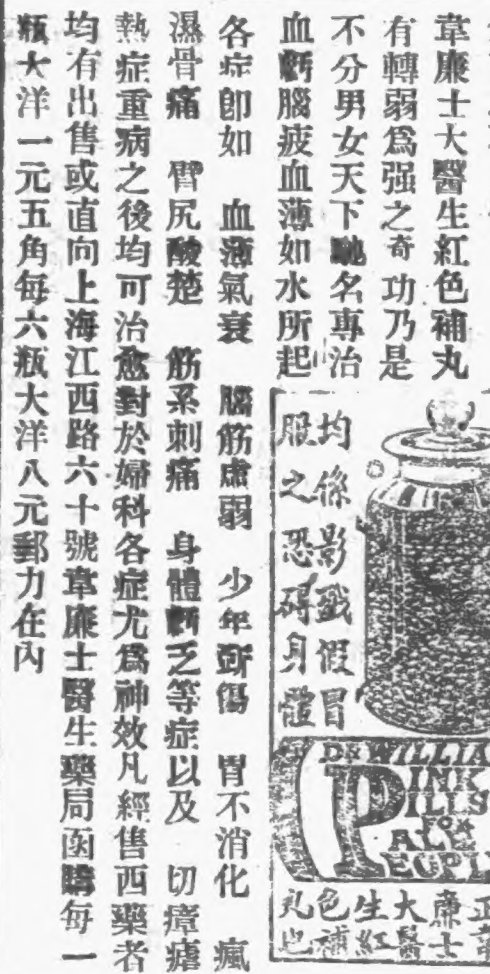 韋廉士大醫生紅色補丸
有轉弱爲强之奇功乃是
不分男女天下馳名專治
血虧腦疲血薄如水所起
各症卽如 血薄氣衰 腦筋虛弱 少年斲傷 胃不消化 瘋
濕骨痛 臀尻酸楚 筋系刺痛 身體虧乏等症以及 切瘴瘧
熱症重病之後均可治愈對於婦科各症尤爲神效凡經售西藥者
均有出售或直向上海江西路六十號韋廉士醫生藥局函購每一
瓶大洋一元五角每六瓶大洋八元郵力在內
均係影戤假冒
服之恐碍身體
DR WILLIA
PINK
PILLS
FOR
PALE
PEOPLE
正韋
廉士
大醫
生紅
色補
丸也